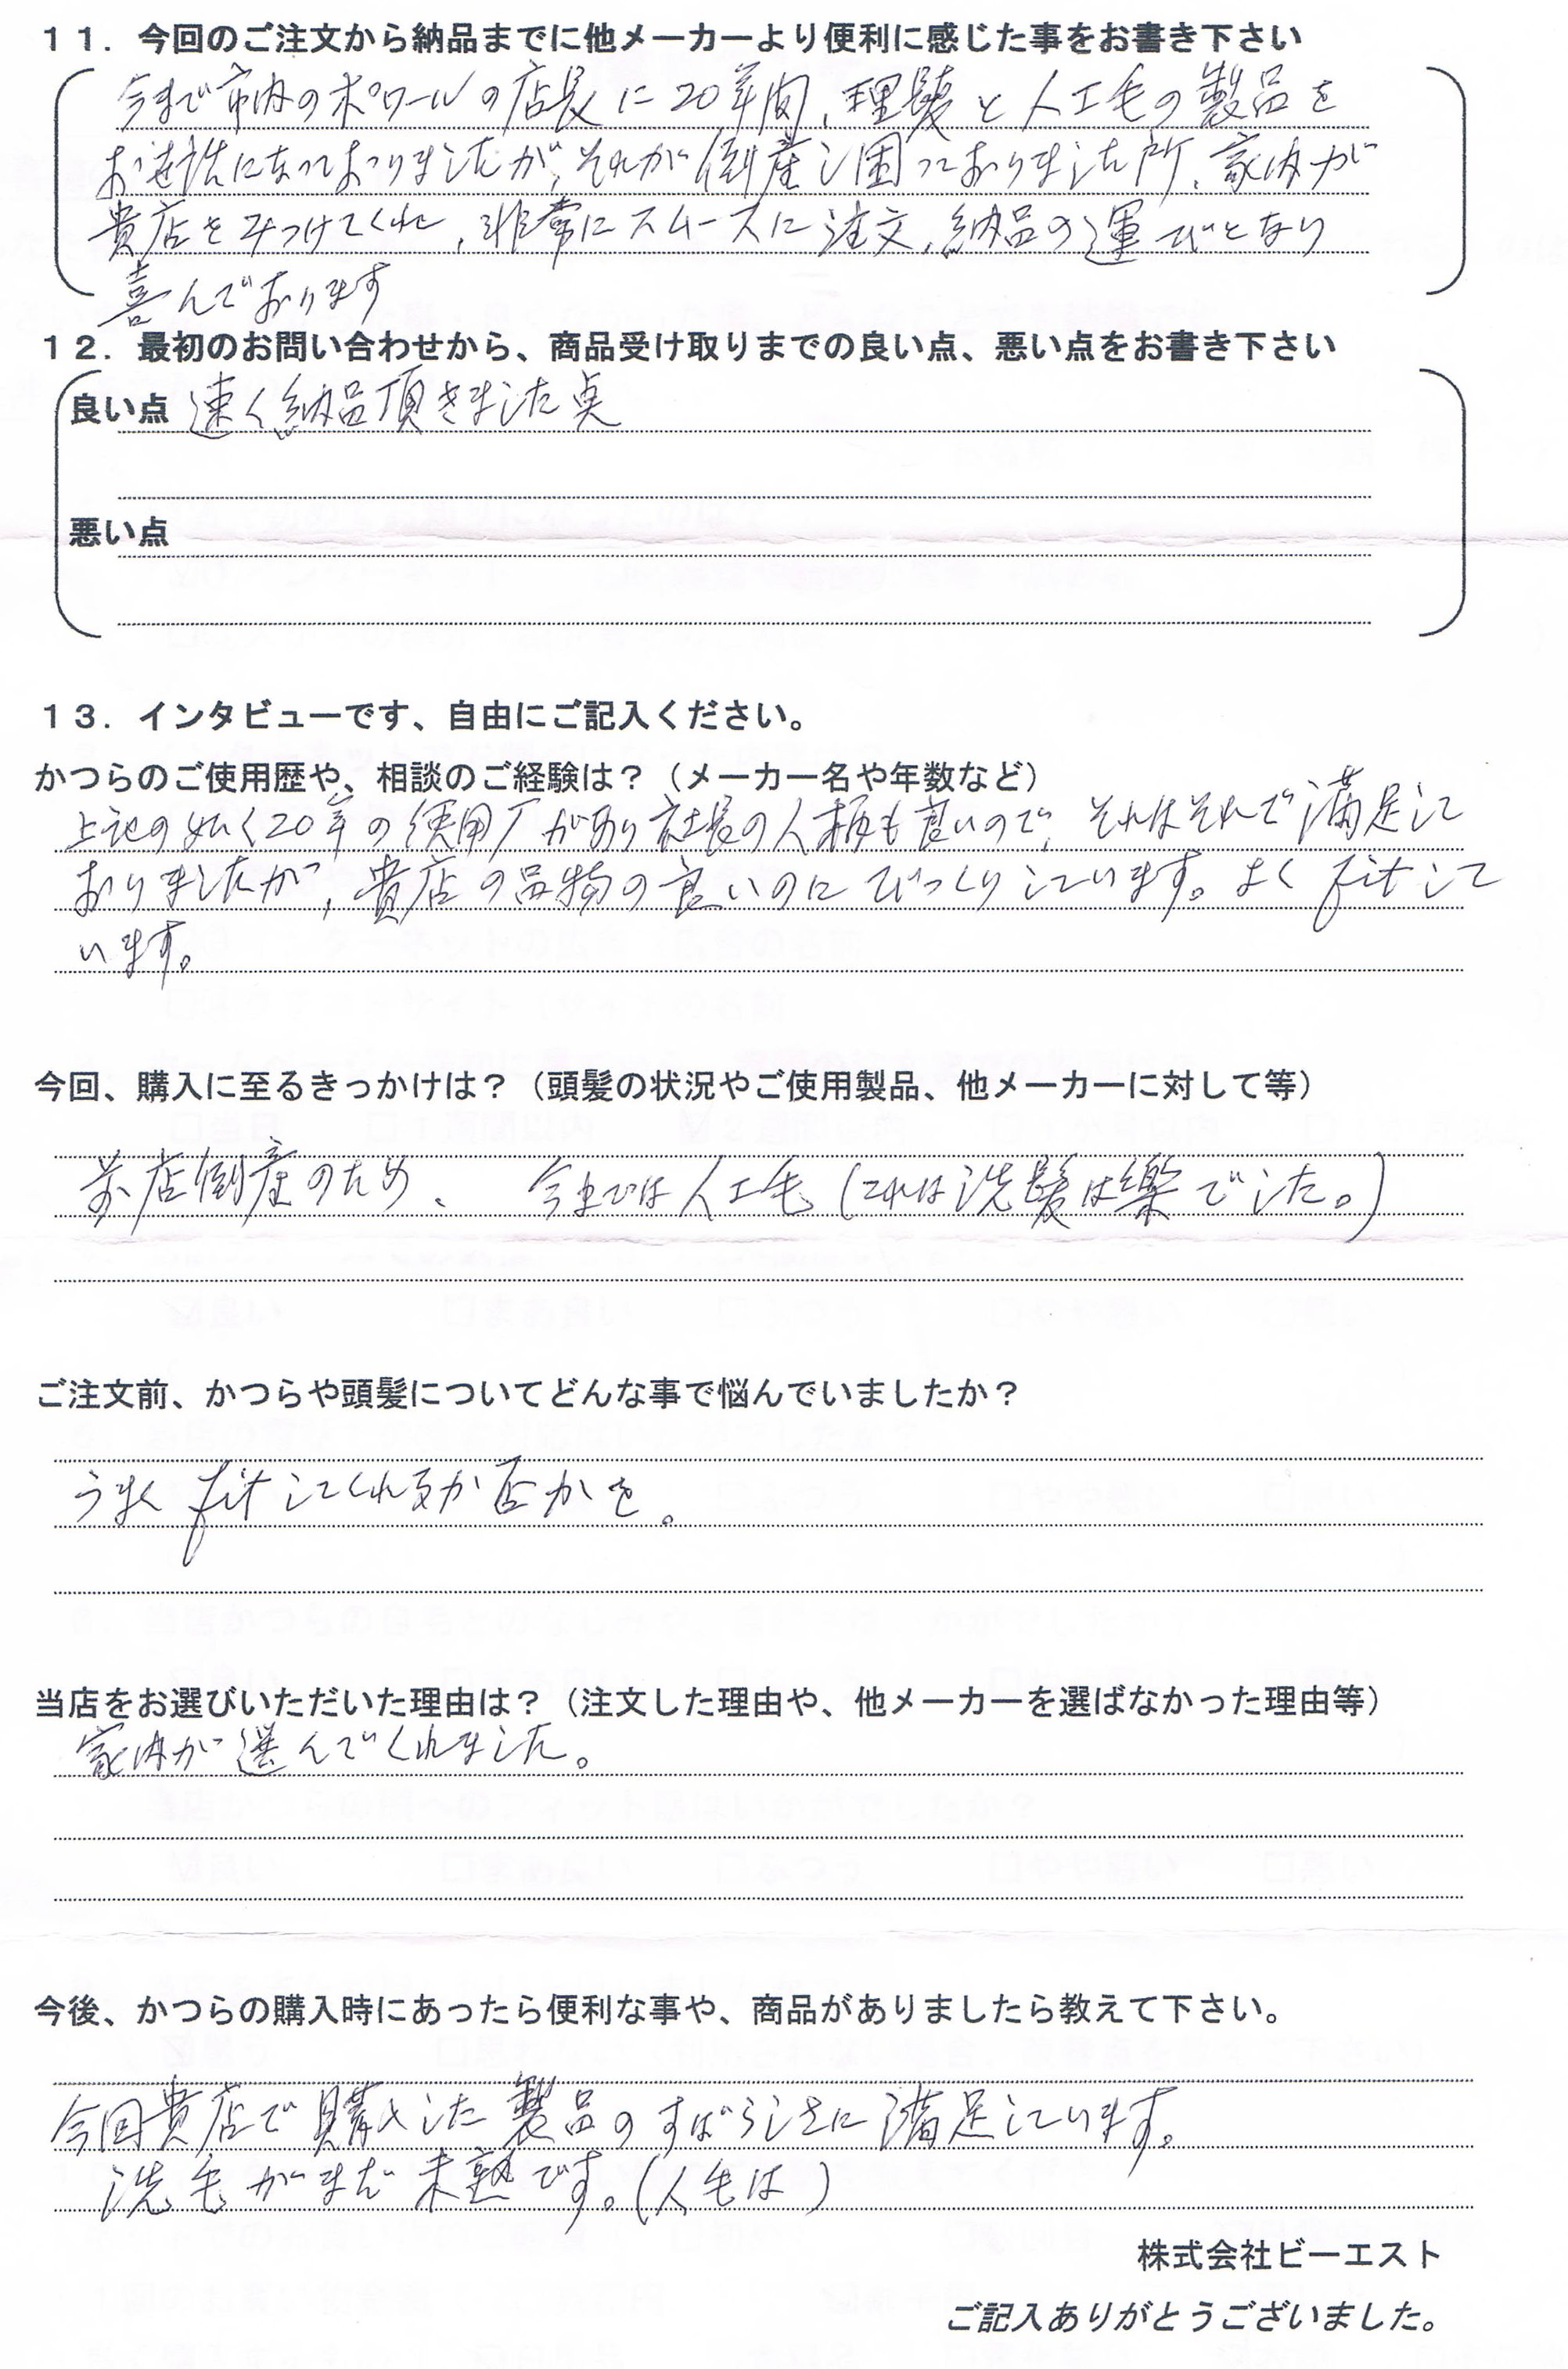 １１．今回のご注文から納品までに他メーカーより便利に感じた事をお書き下さい
今まで市内のポワールの店長に20年間、理髪と人工毛の製品を
お世話になっておりましたが、それが倒産し困っておりました所、家内が
貴店をみつけてくれ、非常にスムースに注文、納品の運びとなり
喜んでおります
１２．最初のお問い合わせから、商品受け取りまでの良い点、悪い点をお書き下さい
良い点 速く納品頂きました点
悪い点
１３．インタビューです、自由にご記入ください。
かつらのご使用歴や、相談のご経験は？（メーカー名や年数など）
上記の如く20年の使用歴があり社長の人柄も良いので、それはそれで満足して
おりましたが、貴店の品物の良いのにびっくりしています。よくfitして
います。
今回、購入に至るきっかけは？（頭髪の状況やご使用製品、他メーカーに対して等）
店倒産のため、 今までは人工毛（これは洗髪は楽でした。）
ご注文前、かつらや頭髪についてどんな事で悩んでいましたか？
うまくfitしてくれるか否かを。
当店をお選びいただいた理由は？（注文した理由や、他メーカーを選ばなかった理由等）
家内が選んでくれました。
今後、かつらの購入時にあったら便利な事や、商品がありましたら教えて下さい。
今回貴店で購入した製品のすばらしさに満足しています。
洗毛がまだ未熟です。（人毛は）
株式会社ビーエスト
ご記入ありがとうございました。